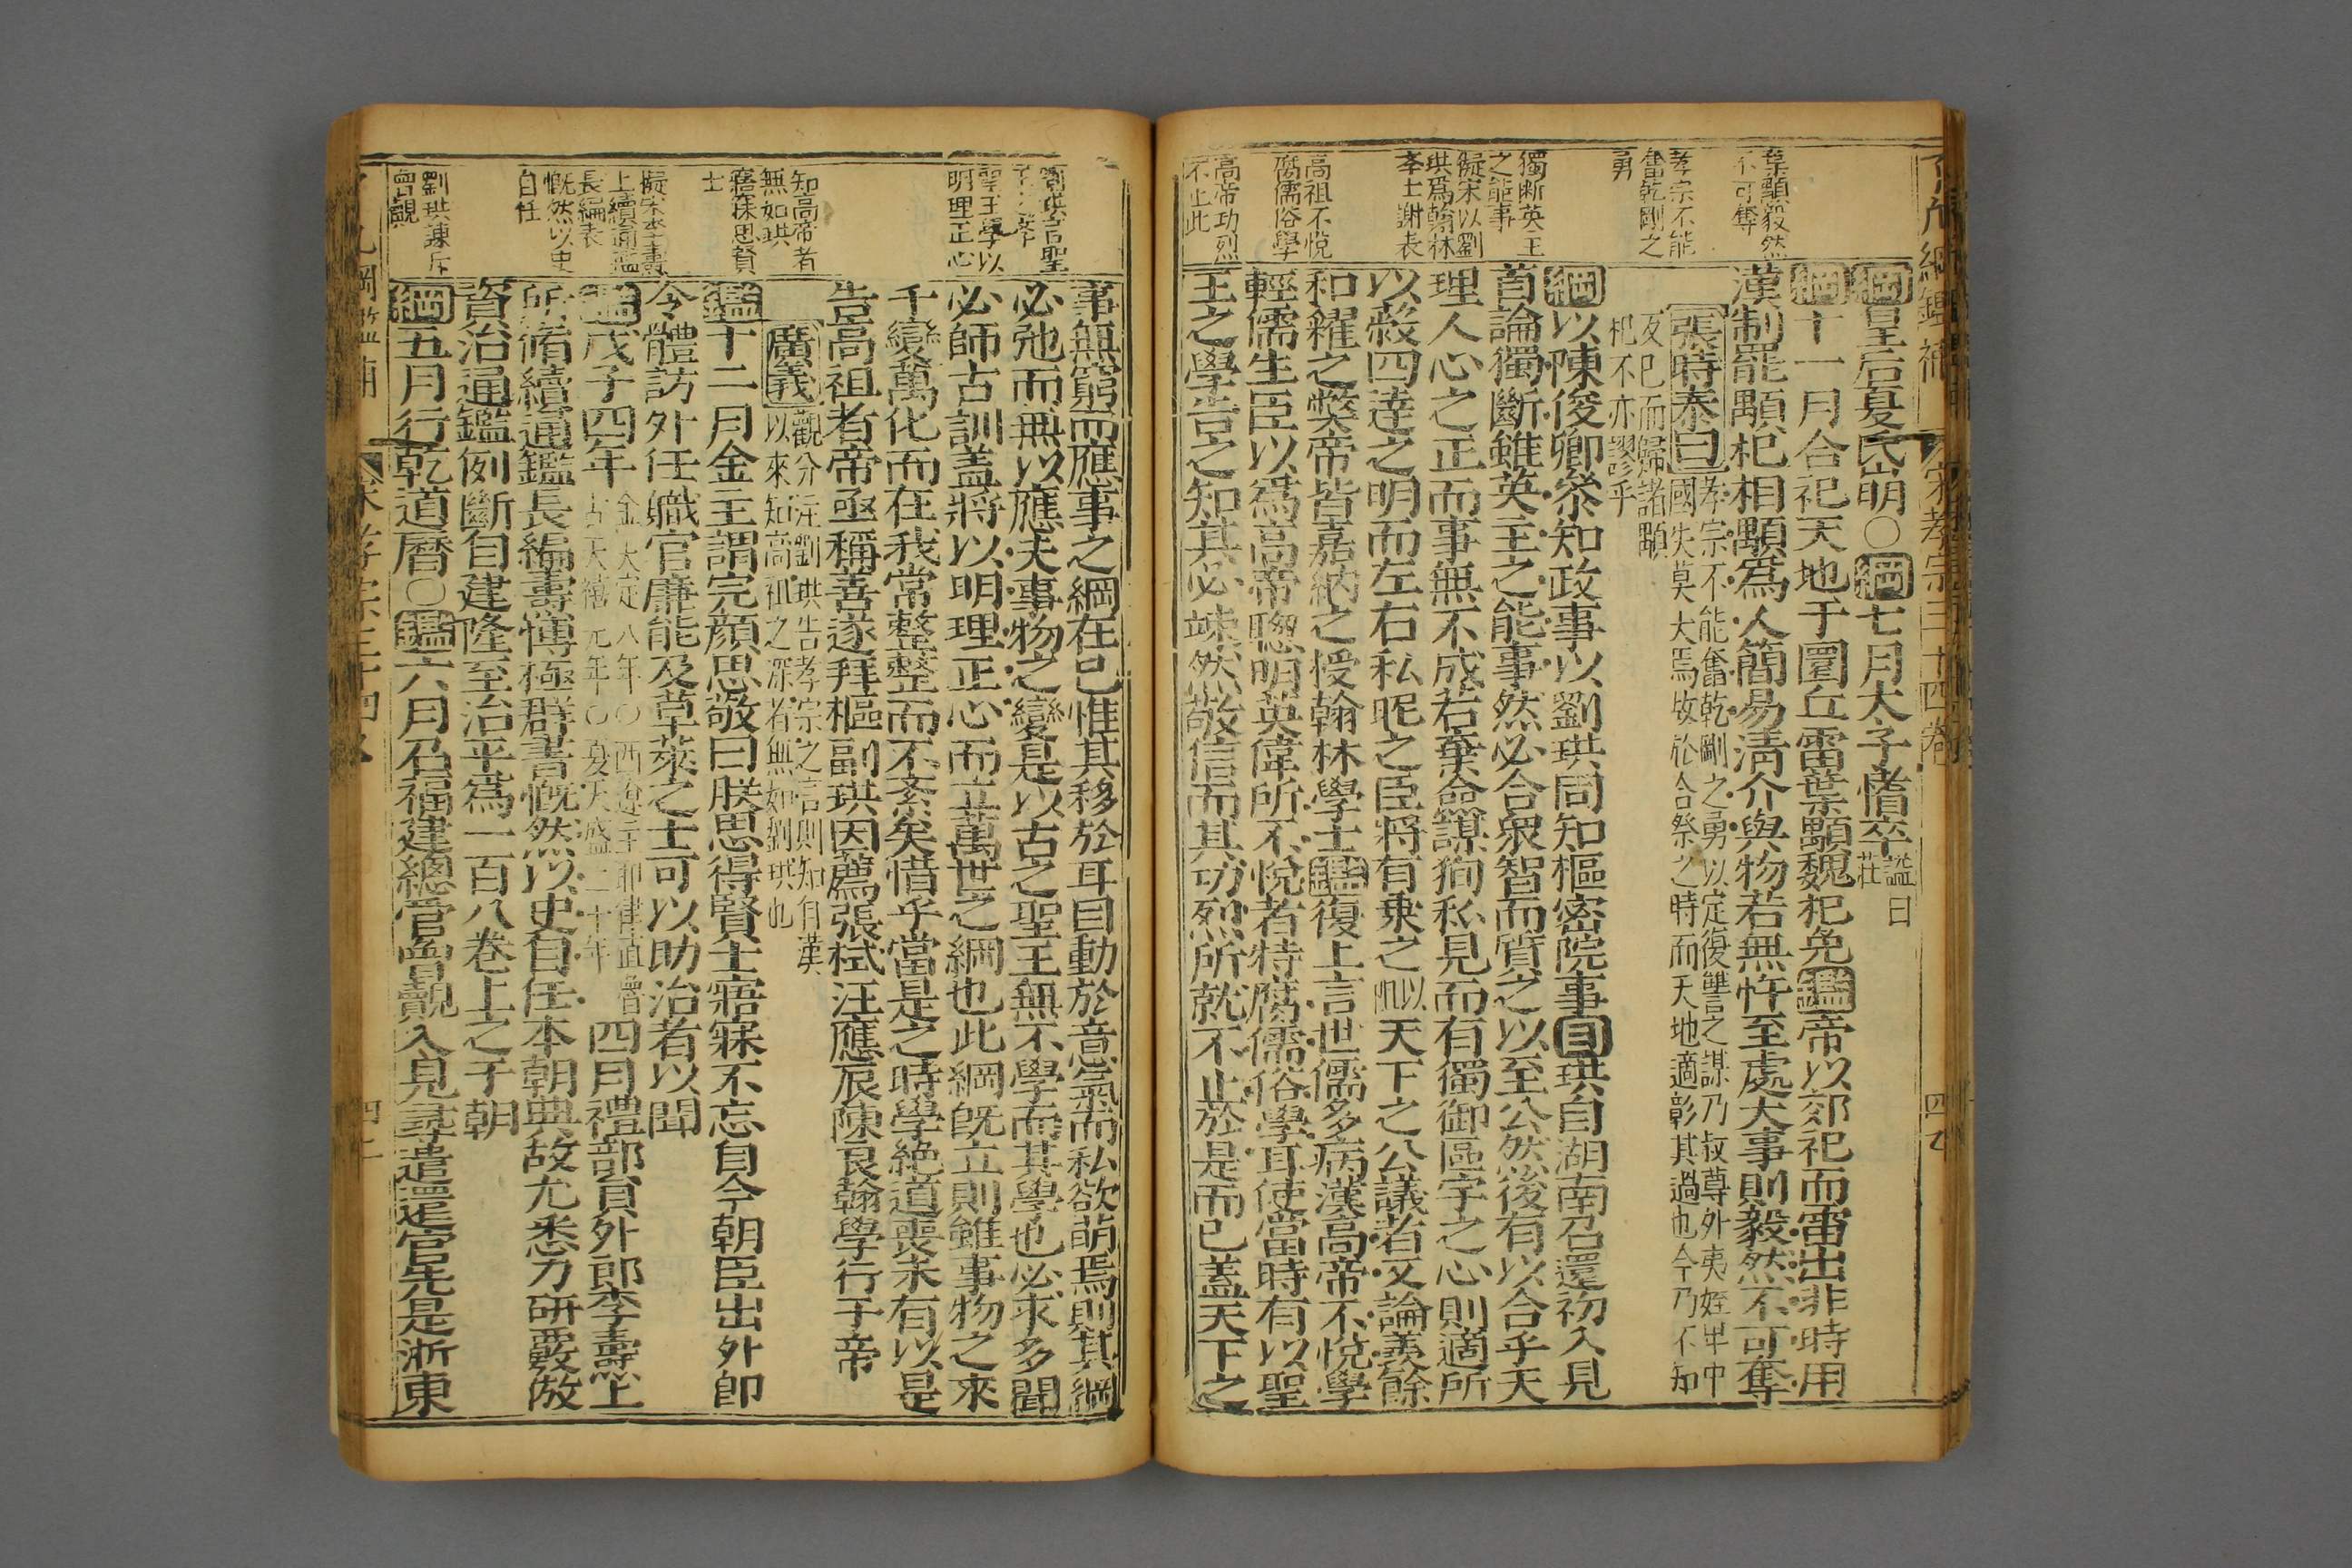 宋孝宗三十四卷
葉顒毅然
不可奪
孝宗不能
奮乾剛之
勇
獨斷英主
之能事
擬宋以劉
珙爲翰林
學士謝表
高祖不悅
腐儒俗學
高帝功烈
不止此
綱皇后夏氏崩○綱七月太子愭卒謚曰莊
綱十一月合祀天地于圜丘雷葉顒魏杞免鑑帝以郊祀而雷出非時用
漢制罷顒杞相顒爲人簡易淸介與物若無忤至處大事則毅然不可奪
張時泰曰孝宗不能奮乾剛之勇以定復讐之謀乃叔尊外夷姪卑中
國失莫大焉故於合祭之時而天地適彰其過也今乃不知
反己而歸諸顒
杞不亦謬乎
綱以陳俊卿叅知政事以劉珙同知樞密院事目珙自湖南召還初入見
首論獨斷雖英主之能事然必合衆智而質之以至公然後有以合乎天
理人心之正而事無不成若棄僉謀徇私見而有獨御區宇之心則適所
以蔽四達之明而左右私昵之臣將有乗之以天下之公議者又論羨餘
和糴之弊帝皆嘉納之授翰林學士鑑復上言世儒多病漢高帝不悅學
輕儒生臣以爲高帝聰明英偉所不悅者特腐儒俗學耳使當時有以聖
王之學告之知其必竦然敬信而其功烈所就不止於是而已蓋天下之
劉珙言聖
聖王學以
明理正心
知高帝者
無如珙
寤寐思賢
士
擬宋李燾
上續通鑑
長編表
慨然以史
自任
劉珙諫斥
曾覿
事無窮而應事之綱在已惟其移於耳目動於意氣而私欲萌焉則其綱
必弛而無以應夫事物之變是以古之聖王無不學而其學也必求多聞
必師古訓蓋將以明理正心而立萬世之綱也此綱旣立則雖事物之來
千變萬化而在我常整整而不紊矣惜乎當是之時學絶道喪未有以是
告高祖者帝亟稱善遂拜樞副珙因薦張栻汪應辰陳良翰學行于帝
廣義觀分注劉珙告孝宗之言則知自漢
以來知高祖之深者無如劉珙也
鑑十二月金主謂完顔思敬曰朕思得賢士寤寐不忘自今朝臣出外卽
令體訪外任職官廉能及草萊之士可以助治者以聞
鑑戊子四年金大定八年○西遼主耶律直魯古天禧元年○夏天盛二十年四月禮部員外郎李燾上
所脩續通鑑長編燾慱極群書慨然以史自任本朝典故尤悉力研覈倣
資治通鑑例斷自建隆至治平爲一百八卷上之于朝
綱五月行乾道曆○鑑六月召福建總管曾覿入見尋遣還官先是浙東